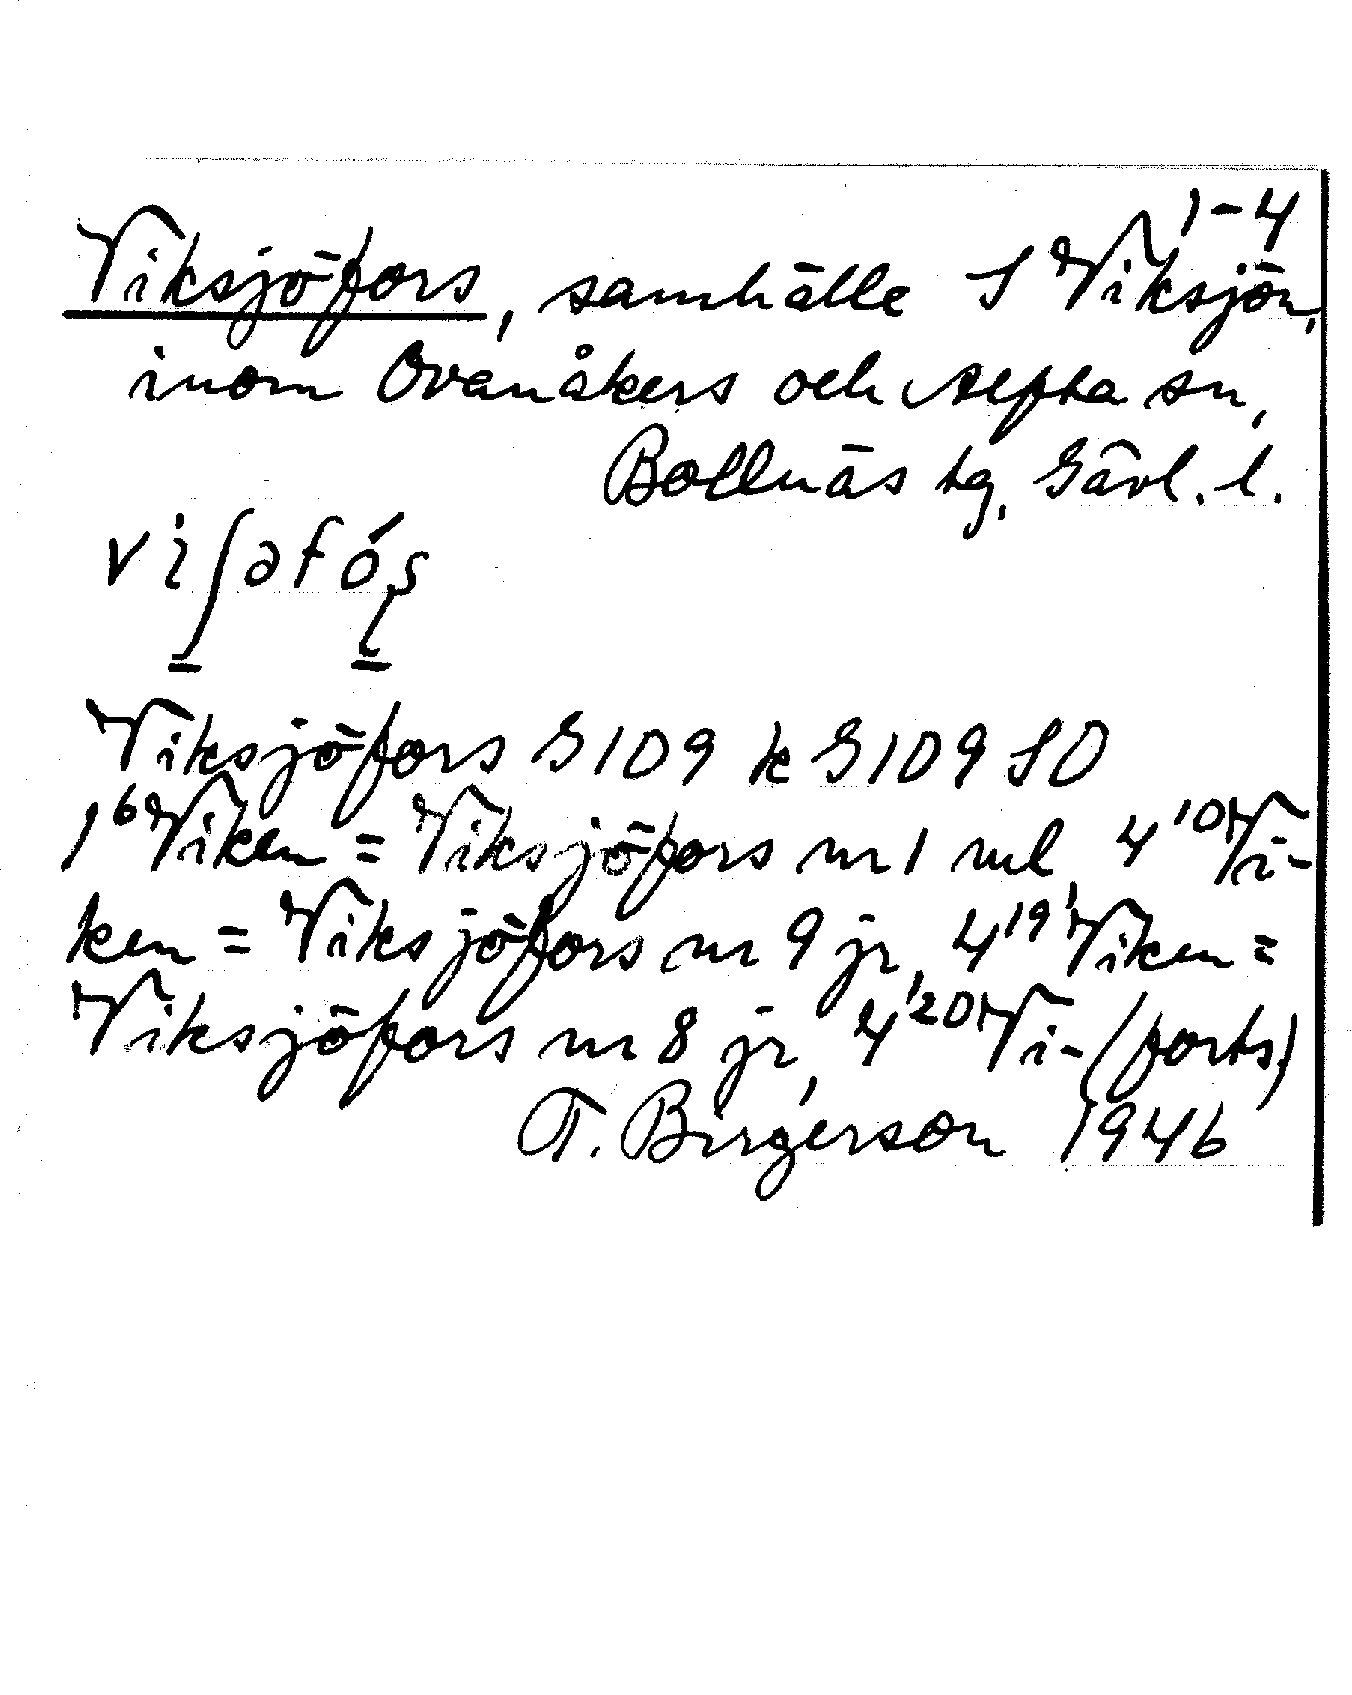 1-4
Viksjöfors, samhälle S Viksjön,
inom Ovanåkers och Alfta sn,
Bollnäs tg, Gävl. l.
viʃəfóş
Viksjöfors G109 k G109 SO
1⁶ Viken = Viksjöfors nr 1 ml, 4¹⁰ Vi-
ken = Viksjöfors nr 9 jr, 4¹⁹ Viken =
Viksjöfors nr 8 jr, 4²⁰ Vi- (forts.)
T. Birgerson 1946